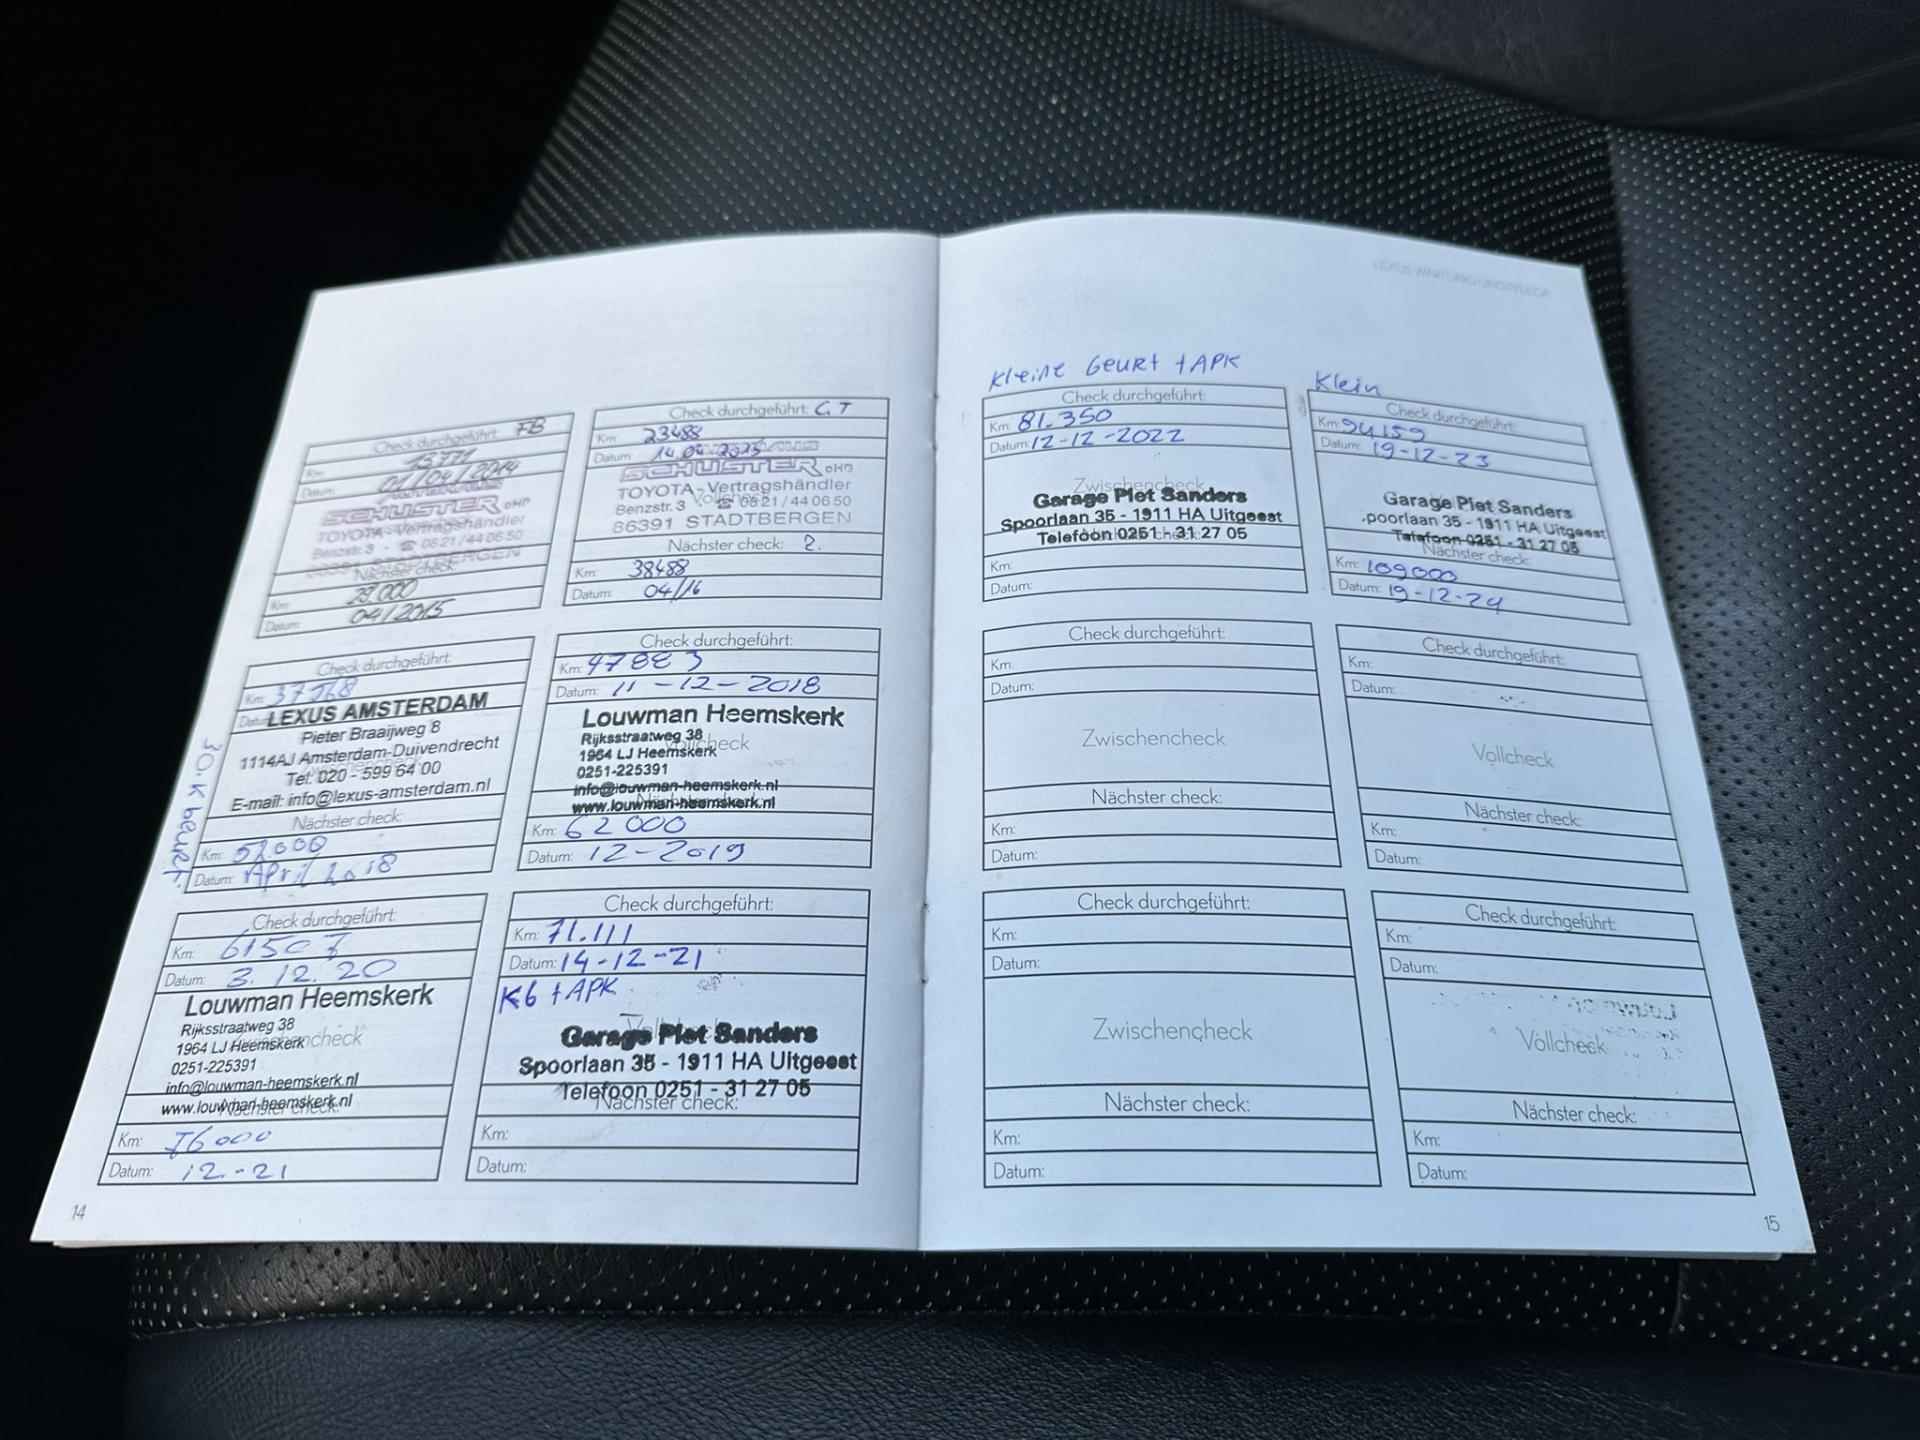 Check durchgeführt: FB
Km:
Datum: 01/04/2014
SCHUSTER oHG
TOYOTA-Vertragshändler
Benzstr. 3 ☎ 0821/44 06 50
86391 STADTBERGEN
Nächster check:
Km: 29.000
Datum: 04/2015
Check durchgeführt: C.T
Km: 23488
Datum: 14.04.2015
AUTOHAUS
SCHUSTER oHG
TOYOTA-Vertragshändler
Vollcheck
Benzstr. 3 ☎ 0821/44 06 50
86391 STADTBERGEN
Nächster check: 2.
Km: 38488
Datum: 04/16
Check durchgeführt:
Km: 37768
Datum:
LEXUS AMSTERDAM
Pieter Braaijweg 8
1114AJ Amsterdam-Duivendrecht
Tel: 020 - 599 64 00
E-mail: info@lexus-amsterdam.nl
Nächster check:
Km: 52.000
Datum: April 2018
30.K beurt
Check durchgeführt:
Km: 47883
Datum: 11-12-2018
Louwman Heemskerk
Rijksstraatweg 38
Vollcheck
1964 LJ Heemskerk
0251-225391
info@louwman-heemskerk.nl
www.louwman-heemskerk.nl
Nächster check:
Km: 62000
Datum: 12-2019
Check durchgeführt:
Km: 61507
Datum: 3.12.20
Louwman Heemskerk
Rijksstraatweg 38
1964 LJ Heemskerk
Zwischencheck
0251-225391
info@louwman-heemskerk.nl
www.louwman-heemskerk.nl
Nächster check:
Km: 76000
Datum: 12-21
Check durchgeführt:
Km: 71.111
Datum: 14-12-21
KB + APK
Vollcheck
Garage Piet Sanders
Spoorlaan 35 - 1911 HA Uitgeest
Telefoon 0251 - 31 27 05
Nächster check:
Km:
Datum:
14
Kleine Beurt + APK
Check durchgeführt:
Km: 81.350
Datum: 12-12-2022
Zwischencheck
Garage Piet Sanders
Spoorlaan 35 - 1911 HA Uitgeest
Telefoon 0251 - 31 27 05
Km:
Datum:
Klein
Check durchgeführt:
Km: 94159
Datum: 19-12-23
Garage Piet Sanders
poorlaan 35 - 1911 HA Uitgeest
Telefoon 0251 - 31 27 05
Nächster check:
Km: 109000
Datum: 19-12-24
Check durchgeführt:
Km:
Datum:
Zwischencheck
Nächster check:
Km:
Datum:
Check durchgeführt:
Km:
Datum:
Vollcheck
Nächster check:
Km:
Datum:
Check durchgeführt:
Km:
Datum:
Zwischencheck
Nächster check:
Km:
Datum:
Check durchgeführt:
Km:
Datum:
Vollcheck
Nächster check:
Km:
Datum:
15